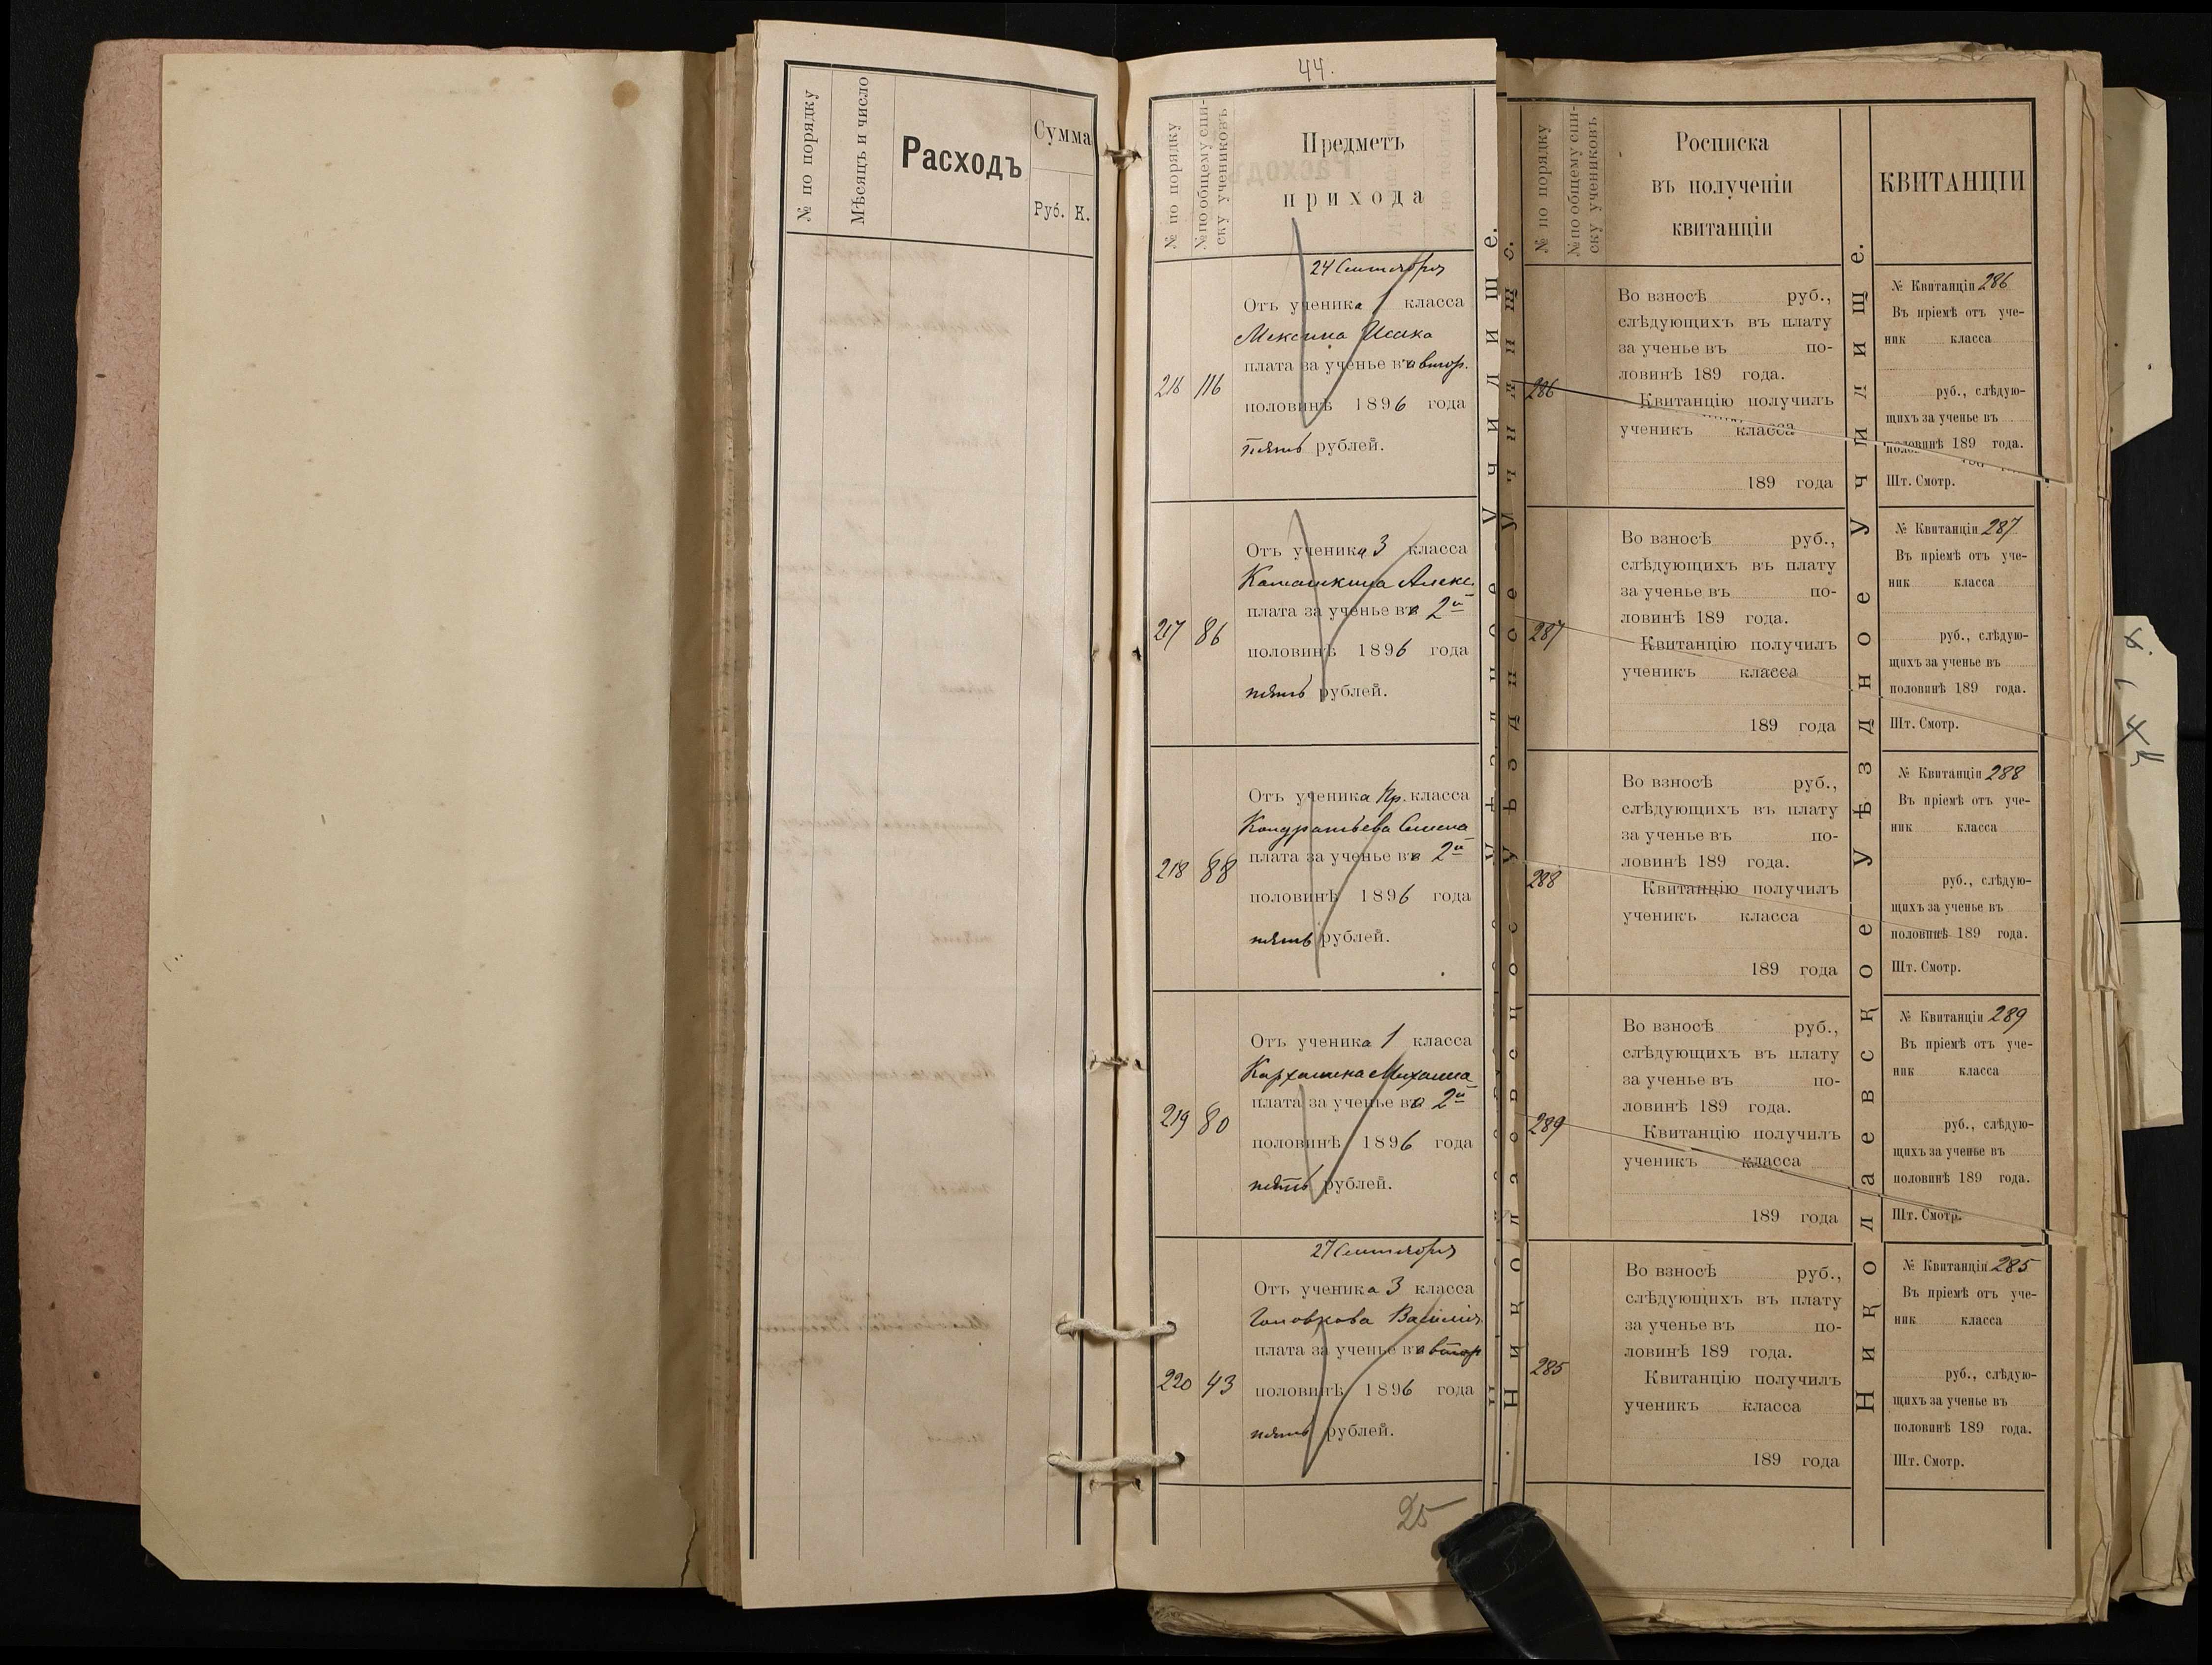 № по порядку
Мѣсяцъ и число
Расходъ
Сумма
Руб. К.
44.
№ по порядку
№ по общему спи-
ску учениковъ
Предметъ
прихода
24 Сентября
Отъ ученика 1 класса
Исака
плата за ученье въ втор.
216 116
половинѣ 1896 года
пять рублей.
Отъ ученика 3 класса
Камашкина Алекс.
плата за ученье въ 2й
217 86
половинѣ 1896 года
пять рублей.
Отъ ученика Пр. класса
Кондратьева Семена
плата за ученье въ 2й
218 88
половинѣ 1896 года
пять рублей.
Отъ ученика 1 класса
Михаила
плата за ученье въ 2й
219 80
половинѣ 1896 года
пять рублей.
27 Сентября
Отъ ученика 3 класса
Головкова Василія
плата за ученье въ втор
220 43
половинѣ 1896 года
пять рублей.
25
№ по порядку
№ по общему спи-
ску учениковъ
Росписка
въ полученіи
квитанціи
Во взносѣ руб.,
слѣдующихъ въ плату
за ученье въ по-
ловинѣ 189 года.
286
Квитанцію получилъ
ученикъ класса
189 года
Во взносѣ руб.,
слѣдующихъ въ плату
за ученье въ по-
ловинѣ 189 года.
287
Квитанцію получилъ
ученикъ класса
189 года
Во взносѣ руб.,
слѣдующихъ въ плату
за ученье въ по-
ловинѣ 189 года.
288
Квитанцію получилъ
ученикъ класса
189 года
Во взносѣ руб.,
слѣдующихъ въ плату
за ученье въ по-
ловинѣ 189 года.
289
Квитанцію получилъ
ученикъ класса
189 года
Во взносѣ руб.,
слѣдующихъ въ плату
за ученье въ по-
ловинѣ 189 года.
285
Квитанцію получилъ
ученикъ класса
189 года
Николаевское Уѣздное Училище.
КВИТАНЦІИ
№ Квитанціи 286
Въ пріемѣ отъ уче-
ник класса
руб., слѣдую-
щихъ за ученье въ
половинѣ 189 года.
Шт. Смотр.
№ Квитанціи 287
Въ пріемѣ отъ уче-
ник класса
руб., слѣдую-
щихъ за ученье въ
половинѣ 189 года.
Шт. Смотр.
№ Квитанціи 288
Въ пріемѣ отъ уче-
ник класса
руб., слѣдую-
щихъ за ученье въ
половинѣ 189 года.
Шт. Смотр.
№ Квитанціи 289
Въ пріемѣ отъ уче-
ник класса
руб., слѣдую-
щихъ за ученье въ
половинѣ 189 года.
Шт. Смотр.
№ Квитанціи 285
Въ пріемѣ отъ уче-
ник класса
руб., слѣдую-
щихъ за ученье въ
половинѣ 189 года.
Шт. Смотр.